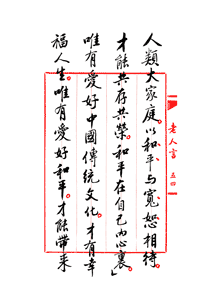 人類大家庭。以和平与寬恕相待。
才能共存共榮。和平在自己内心裏。」
唯有愛好中國傳統文化。才有幸
福人生。唯有愛好和平。才能帶來
老人言 五四